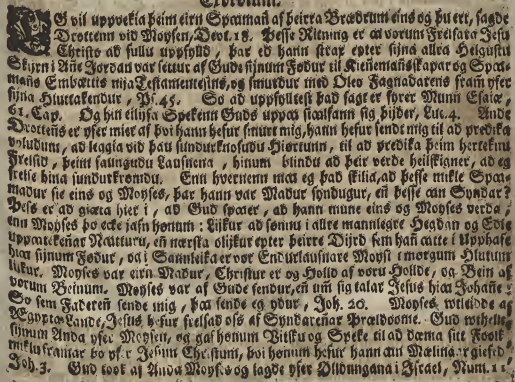 Exordium.
EG vil uppvekia þeim eirn Spæmañ af þeirra Brædrum eins og þu ert, sagde
Drottenn vid Moysen, Devt. 18. Þesse Ritning er a vorum Frelsara Jesu
Christo ad fullu uppfylld, þar ed hann strax epter sijna allra Helgustu
Skijrn i Añe Jordan var settur af Gude sijnum Födur til Kieñemañskapar og Spæ-
mañs Embættis nija Testamentesins, og smurdur med Oleo Fagnadarens fram yfer
sijna Hluttakendur, Ps. 45. So ad uppfylltest þad sagt er fyrer Munn Esaiæ,
61. Cap. Og hin eilijfa Spekenn Guds uppa sialfann sig þijder, Luc. 4. Ande
Drottens er yfer mier af þvi hann hefur smurt mig, hann hefur sendt mig til ad predika
voludum, ad leggia vid þau sundurknosudu Hiörtunn, til ad predika þeim herteknu
Frelsid, þeim faungudu Lausnena, hinum blindu ad þeir verde heilskygner, ad eg
frelse hina sundurkromdu. Enn hvernenn ma eg þad skilia, ad þesse mikle Spæ-
madur sie eins og Moyses, þar hann var Madur syndugur, eñ þesse an Syndar?
Þess er ad giæta hier i, ad Gud spær, ad hann mune eins og Moyses verda,
enn Moyses þo ecke jafn honum: Lijkur ad sönnu i allre mannlegre Hegdan og Edle
uppateknar Natturu, eñ næsta olijkur epter þeirre Dijrd sem hañ ætte i Upphafe
hia sijnum Födur, og i Sannleika er vor Endurlausnare Moysi i morgum Hlutum
lijkur. Moyses var eirn Madur, Christur er og Holld af voru Hollde, og Bein af
vorum Beinum. Moyses var af Gude sendur, eñ um sig talar Jesus hia Johañe:
So sem Fadereñ sende mig, þa sende eg ydur, Joh. 20. Moyses utleidde af
Ægypta Lande, Jesus hefur frelsad oss af Syndareñar Prældome. Gud uthellte
sijnum Anda yfer Moysen, og gaf honum Vitsku og Speke til ad dæma sitt Foolk
miklu framar þo yfer Jesum Christum, þvi honum hefur hann an Mælinar giefed
Joh. 3. Gud took af Anda Moyses og lagde yfer Olldungana i Israel, Num. 11.